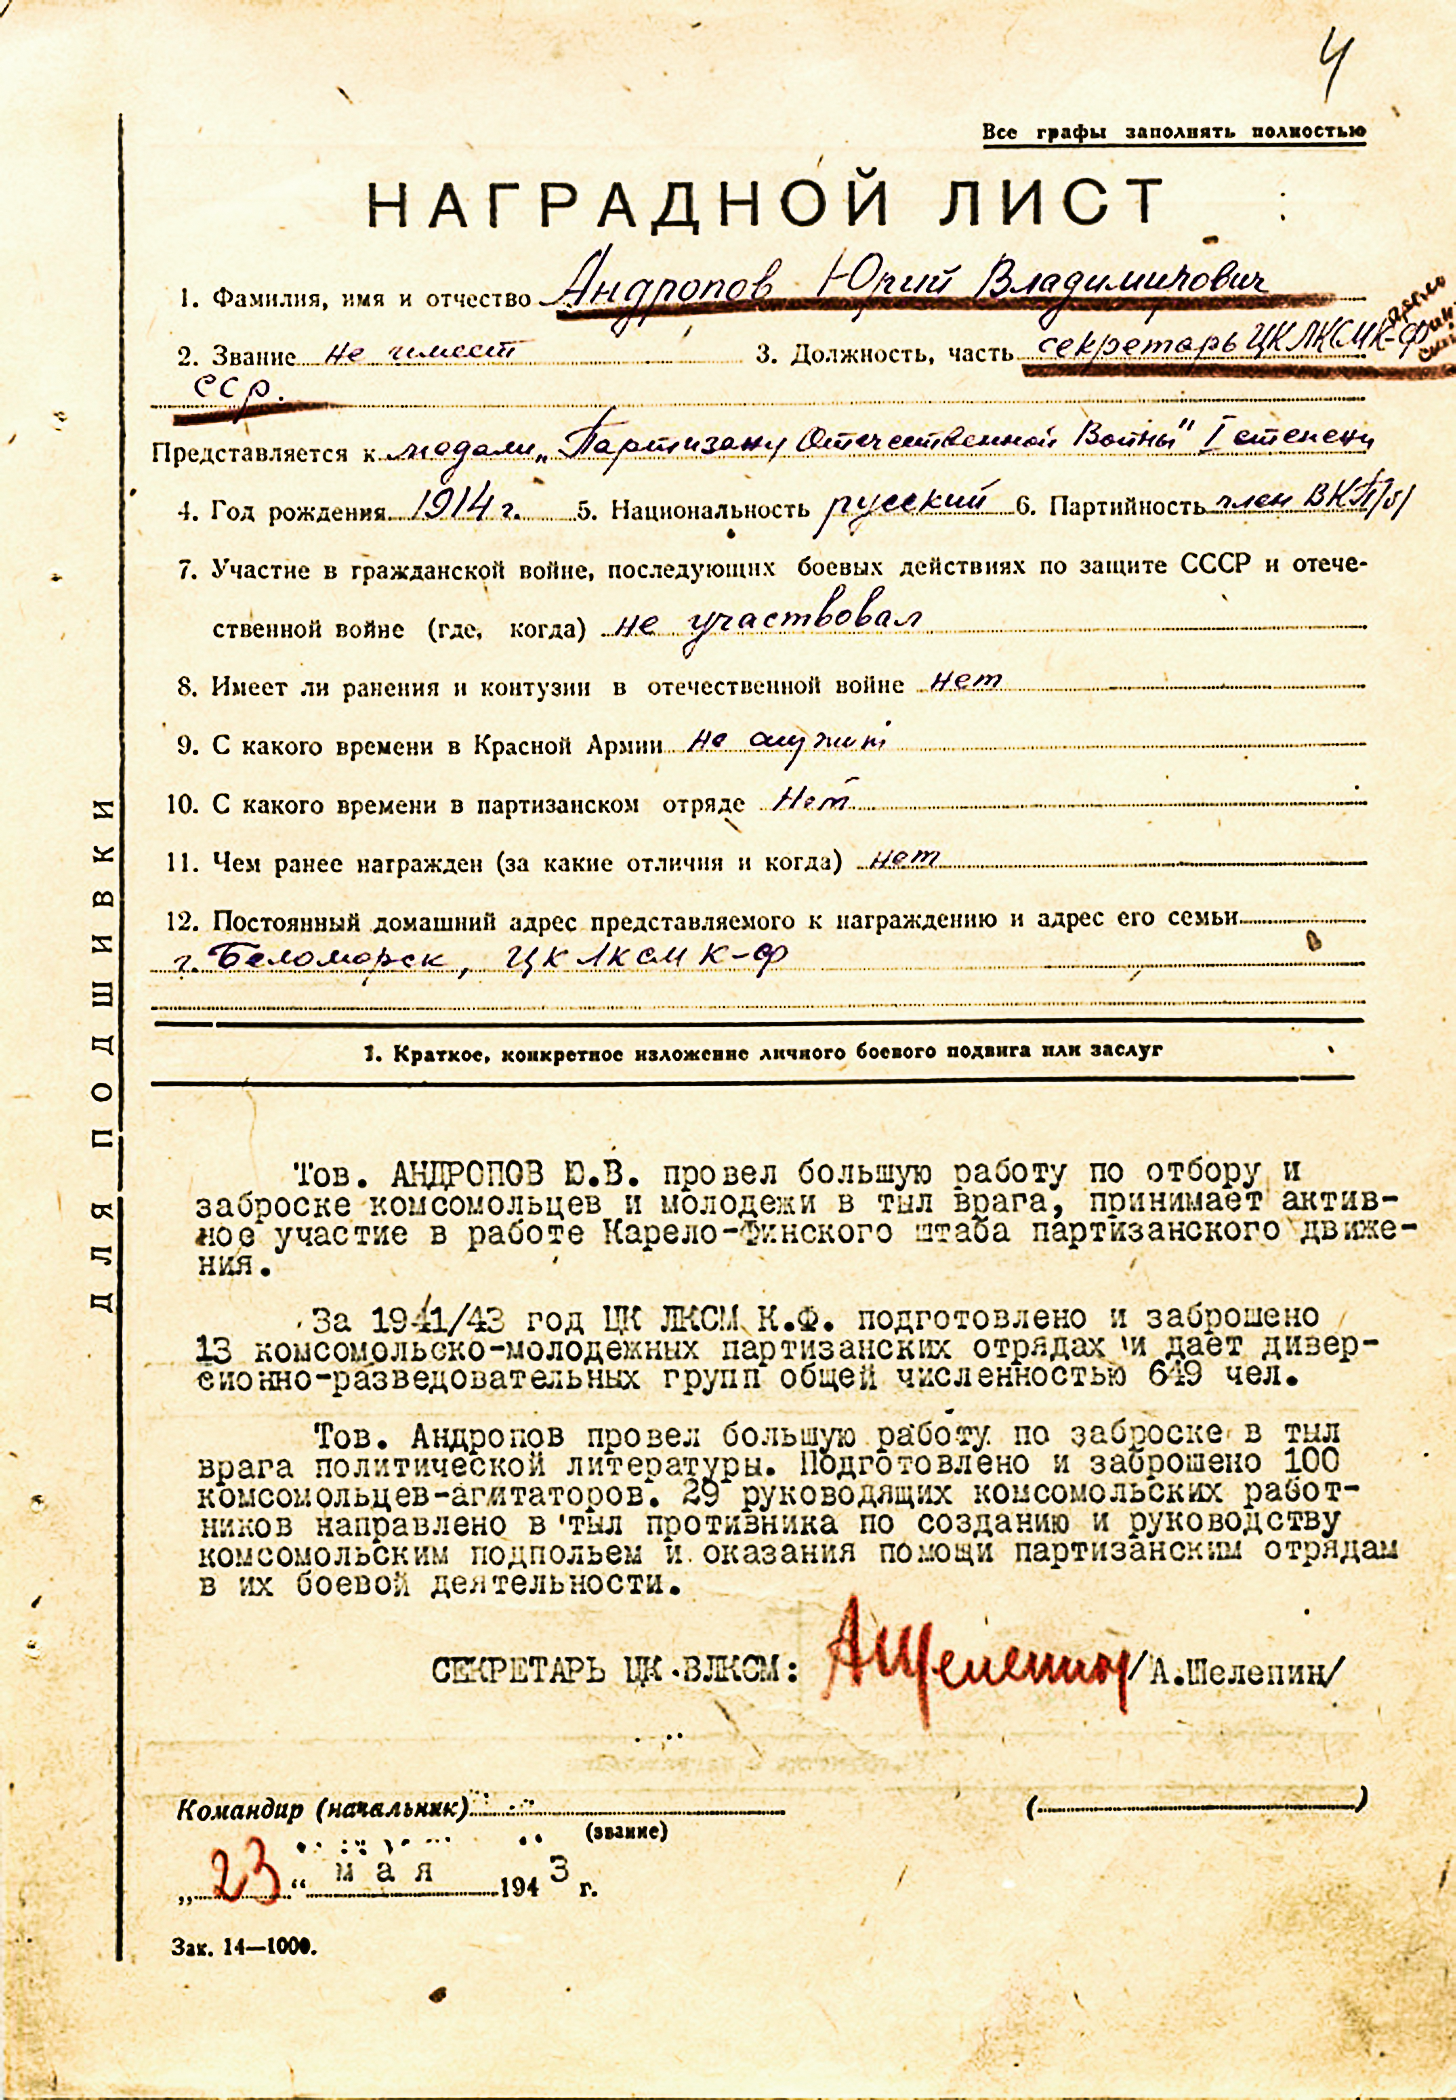 4
Все графы заполнять полностью
НАГРАДНОЙ ЛИСТ
1. Фамилия, имя и отчество Андропов Юрий Владимирович
2. Звание не имеет 3. Должность, часть секретарь ЦК ЛКСМ К-Ф
ССР.
Представляется к медали „Партизану Отечественной Войны" I степени
4. Год рождения 1914 г. 5. Национальность русский 6. Партийность член ВКП/б/
7. Участие в гражданской войне, последующих боевых действиях по защите СССР и отече-
ственной войне (где, когда) не участвовал
8. Имеет ли ранения и контузии в отечественной войне нет
9. С какого времени в Красной Армии не служит
10. С какого времени в партизанском отряде Нет
11. Чем ранее награжден (за какие отличия и когда) нет
12. Постоянный домашний адрес представляемого к награждению и адрес его семьи
г. Беломорск, ЦК ЛКСМ К-Ф
1. Краткое, конкретное изложение личного боевого подвига или заслуг
Тов. АНДРОПОВ Ю.В. провел большую работу по отбору и
заброске комсомольцев и молодежи в тыл врага, принимает актив-
ное участие в работе Карело-Финского штаба партизанского движе-
ния.
За 1941/43 год ЦК ЛКСМ К.Ф. подготовлено и заброшено
13 комсомольско-молодежных партизанских отрядах и дает дивер-
сионно-разведовательных групп общей численностью 649 чел.
Тов. Андропов провел большую работу по заброске в тыл
врага политической литературы. Подготовлено и заброшено 100
комсомольцев-агитаторов. 29 руководящих комсомольских работ-
ников направлено в тыл противника по созданию и руководству
комсомольским подпольем и оказания помощи партизанским отрядам
в их боевой деятельности.
СЕКРЕТАРЬ ЦК ВЛКСМ: АШелепин /А.Шелепин/
Командир (начальник) ( )
(звание)
„23" мая 1943 г.
Зак. 14—1000.
ДЛЯ ПОДШИВКИ